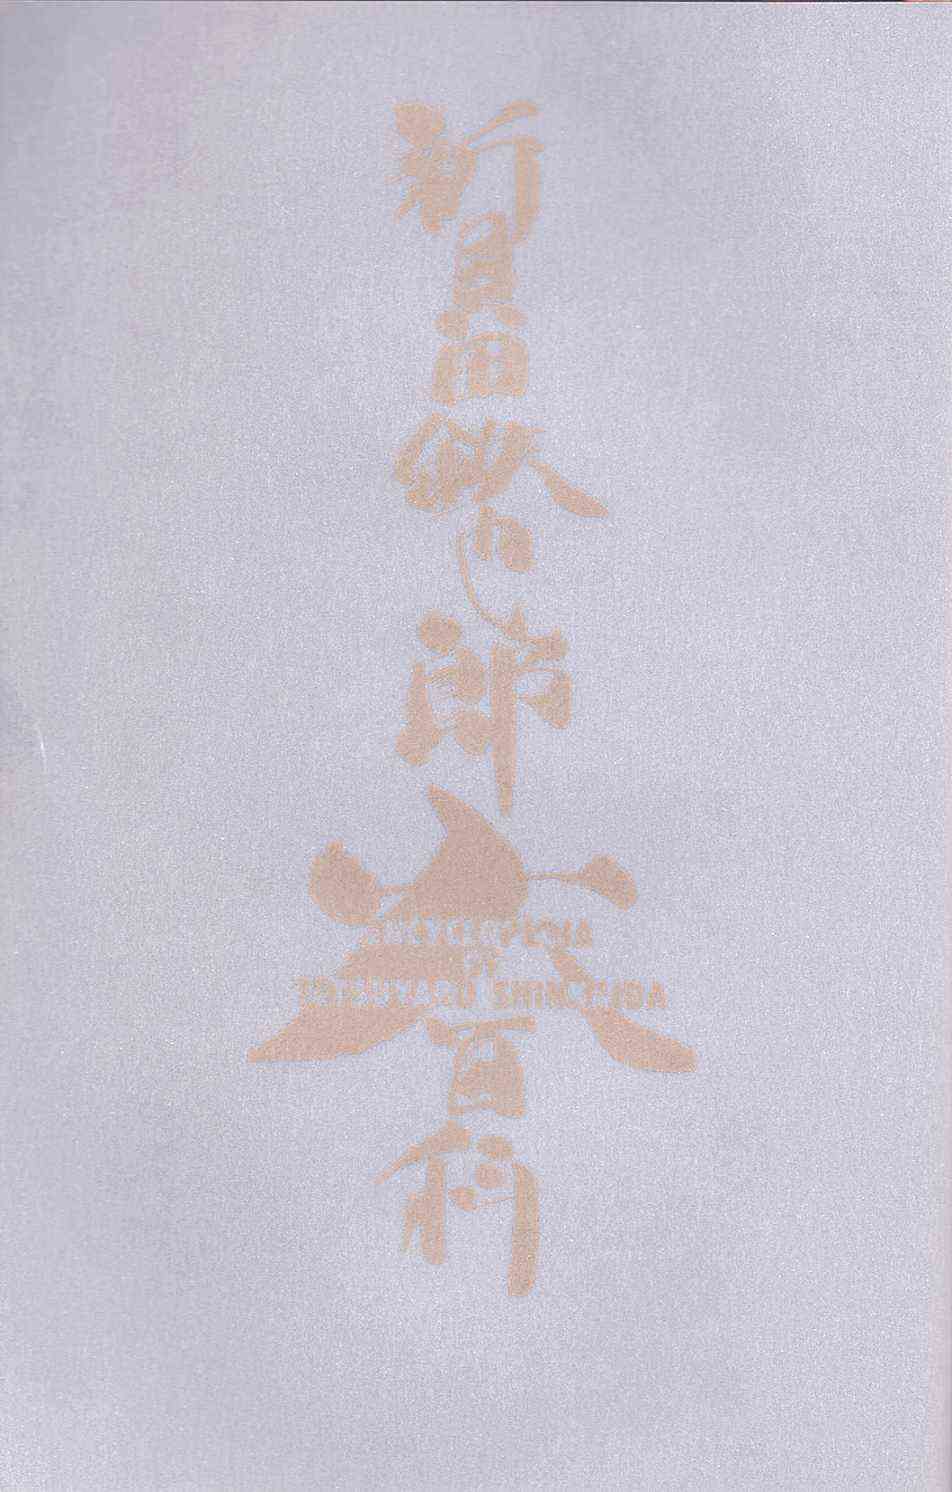 新貝田鉄野郎大百科
ENCYCLOPEDIA
OF
TETSUYARO SHINKAIDA